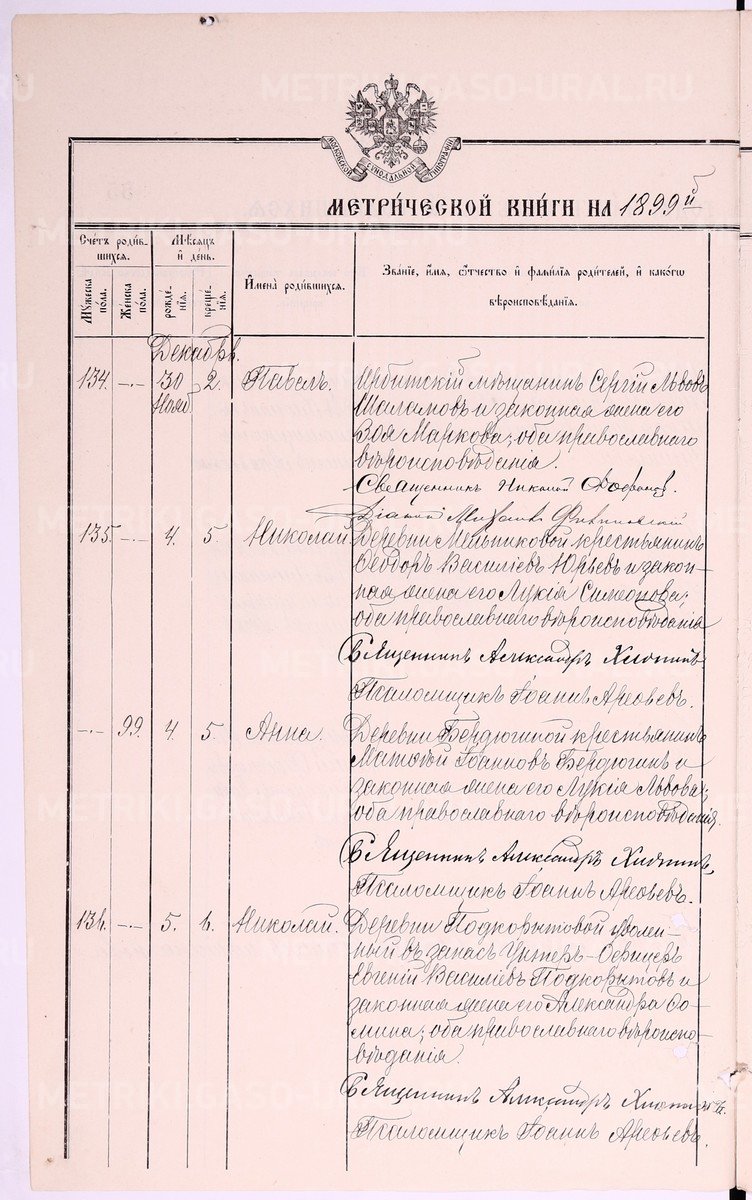 METRIKI.GASO-URAL.RU
МОСКОВСКОЙ СѴНОДАЛЬНОЙ ТИПОГРАФІИ
МЕТРИ́ЧЕСКОЙ КНИ́ГИ НА 1899й
Счетъ роди́вшихся.
Мѣсяцъ и҆ день.
И҆мена̀ роди́вшихся.
Зва́нїе, и҆́мѧ, ѻ҆́тчество и҆ фамилїѧ роди́телей, и҆ како́гѡ
вѣроисповѣ́данїѧ.
Мꙋ́жеска по́ла.
Же́нска по́ла.
рожде́нїѧ.
креще́нїѧ.
Декабрь.
134. -.- 30 Нояб 2. Павелъ. Ирбитскій мѣщанинъ Сергій Львовъ
Шаламовъ и законная жена его
Зоя Маркова; оба православнаго
вѣроисповѣданія.
Священникъ Николай
Діаконъ Михаилъ
135. -.- 4. 5. Николай Деревни Мельниковой крестьянинъ
Ѳеодоръ Василіевъ Юрьевъ и закон-
ная жена его Лукія Симеонова;
оба православнаго вѣроисповѣданія
Священникъ Александръ
Псаломщикъ Іоаннъ Арефьевъ.
-.- 99. 4. 5. Анна. Деревни Бердюгиной крестьянинъ
Матѳій Іоанновъ Бердюгинъ и
законная жена его Лукія Львова;
оба православнаго вѣроисповѣданія,
Священникъ Александръ
Псаломщикъ Іоаннъ Арефьевъ.
136. -.- 5. 6. Николай. Деревни Подкорытовой уволен-
ный въ запасъ Унтеръ-Офицеръ
Евгеній Василіевъ Подкорытовъ и
законная жена его Александра Ѳо-
мина; оба православнаго вѣроиспо-
вѣданія.
Священникъ Александръ
Псаломщикъ Іоаннъ Арефьевъ.